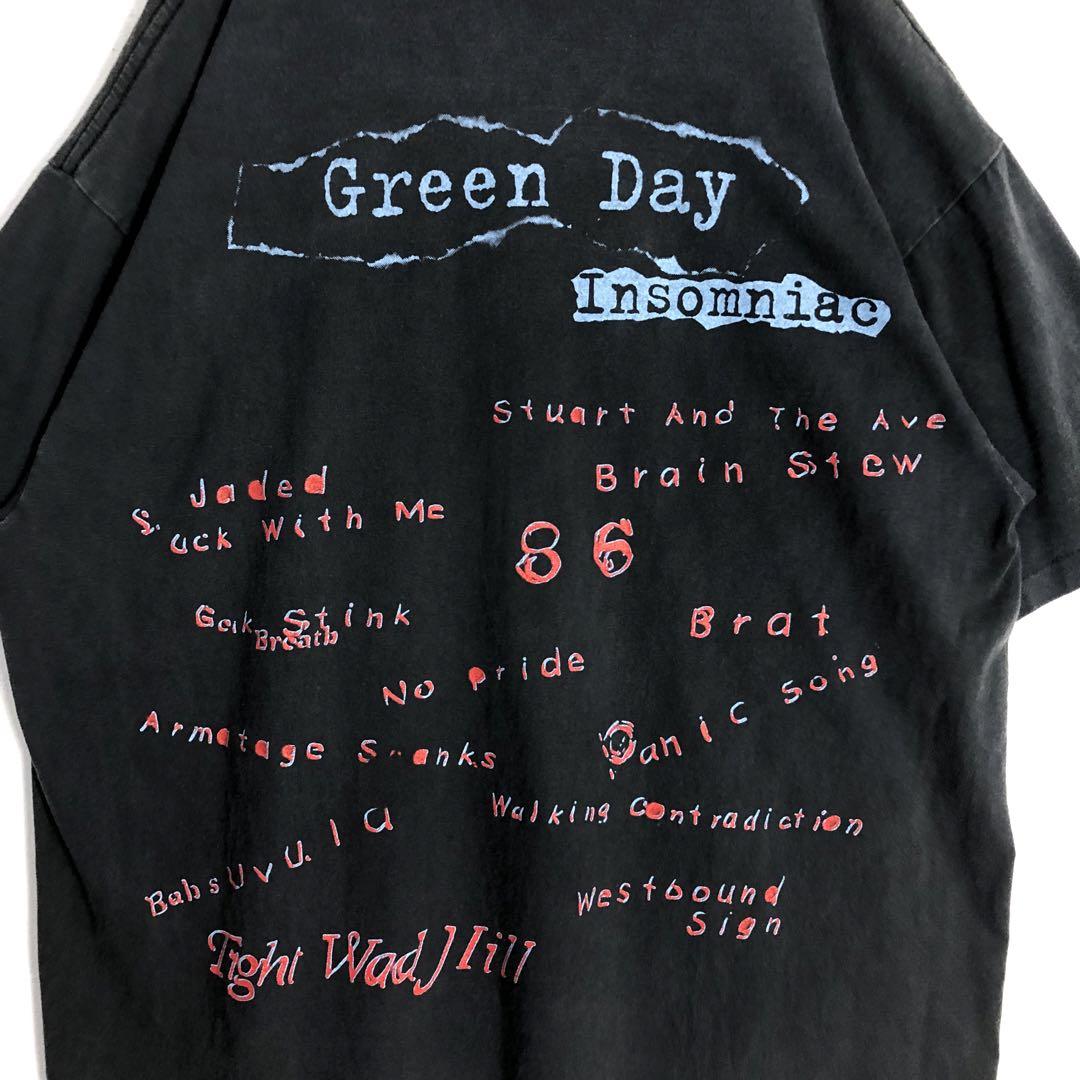 Green Day
Insomniac
Stuart And The Ave
Brain Stew
Jaded
Stuck With Me
86
Geek Stink
Breath
Brat
No Pride
Panic Song
Armatage Shanks
Walking Contradiction
Babs Uvula
Westbound
Sign
Tight Wad Hill